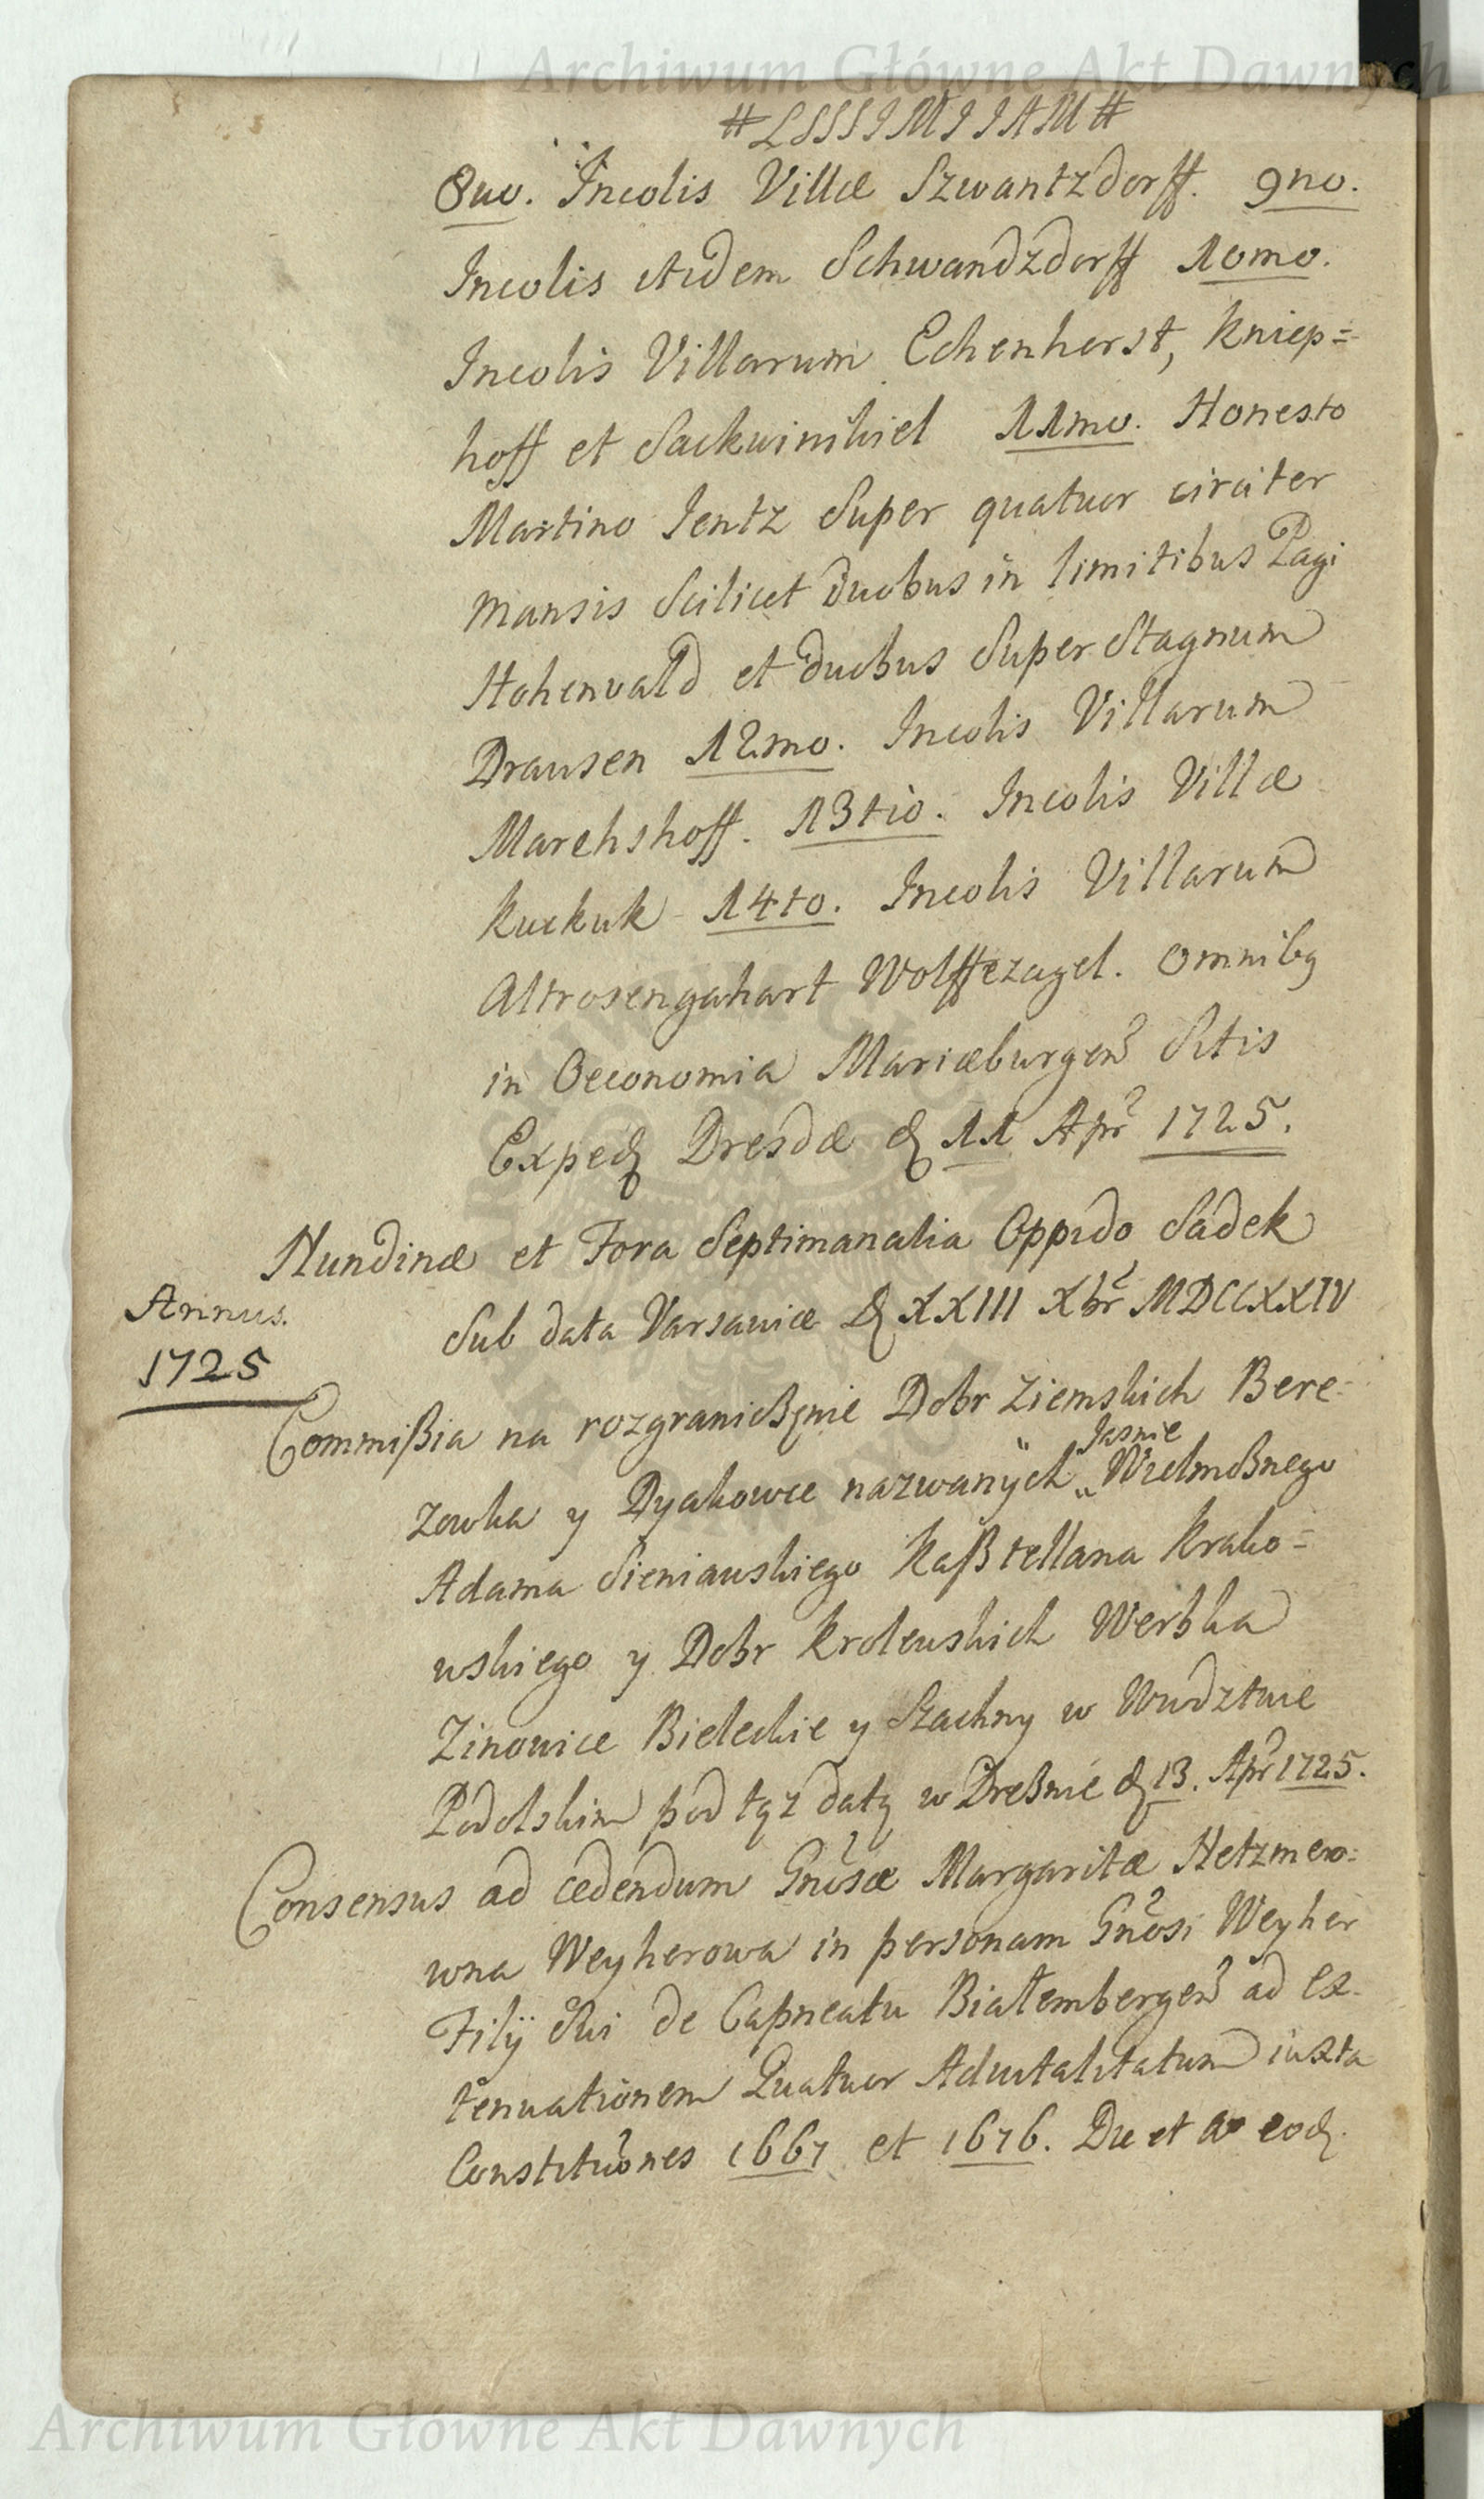 Archiwum Główne Akt Dawnych
8uo. Incolis Villæ Szwantzdorff. 9no.
Incolis itidem Schwandzdorff 10mo.
Incolis Villarum Echenhorst, Kniep=
hoff et Sackwinkiel 11mo. Honesto
Martino Jentz Super quatuor circiter
Mansis Scilicet duobus in limitibus Pagi
Hohenvald et duobus Super Stagnum
Drausen 12mo. Incolis Villarum
Marehshoff. 13tio. Incolis Villæ
Kuckuk 14to. Incolis Villarum
Altrosengahart Wolffezagel. omnibq
in Oeconomia Mariæburgen Sitis
Exped Dresdæ d 11 Apr 1725.
Nundinæ et Fora Septimanalia Oppido Sadek
Sub data Varsaviæ d XXIII Xbr MDCCXXIV
Annus.
1725
Commißia na rozgraniczęnie Dobr Ziemskich Bere=
zowka y Dyakowce nazwanÿch „Jasnie Wielmoßnego
Adama Sieniawskiego Kaßtellana Krako=
wskiego y Dobr Krolewskich Werbka
Zinowice Bieleckie y Szachny w Wwdztwie
Podolskim pod tąż datą w Dreßnie d 13. Apr 1725.
Consensus ad cedendum Gnosæ Margaritæ Hetzmero=
wna Weyherowa in personam Gnosi Weyher
Filÿ Sui de Capneatu Białembergen ad ex=
tenuationem Quatuor Advitalitatum iuxta
Constituones 1667 et 1676. Die et Ao eod.
Archiwum Główne Akt Dawnych